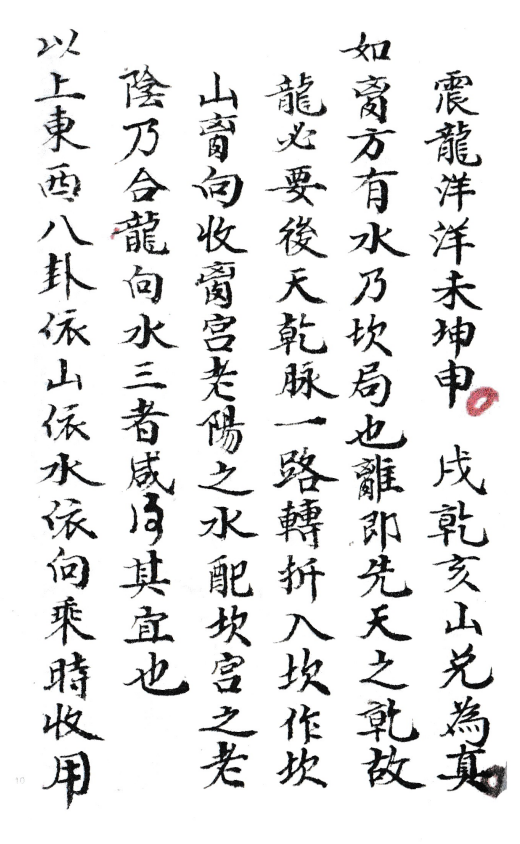 震龍洋洋未坤申　戌乾亥山兌為真
如离方有水乃坎局也離即先天之乾故
龍必要後天乾脉一路轉折入坎作坎
山离向收离宮老陽之水配坎宮之老
陰乃合龍向水三者咸得其宜也
以上東西八卦依山依水依向乘時收用